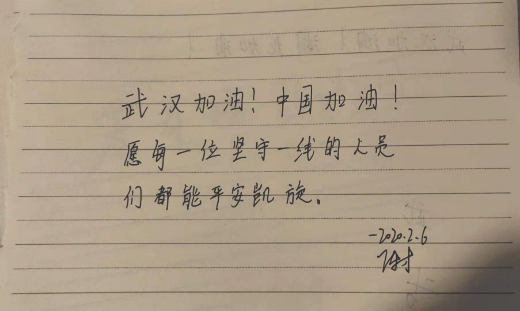 武汉加油！中国加油！
愿每一位坚守一线的人员
们都能平安凯旋。
-2020.2.6